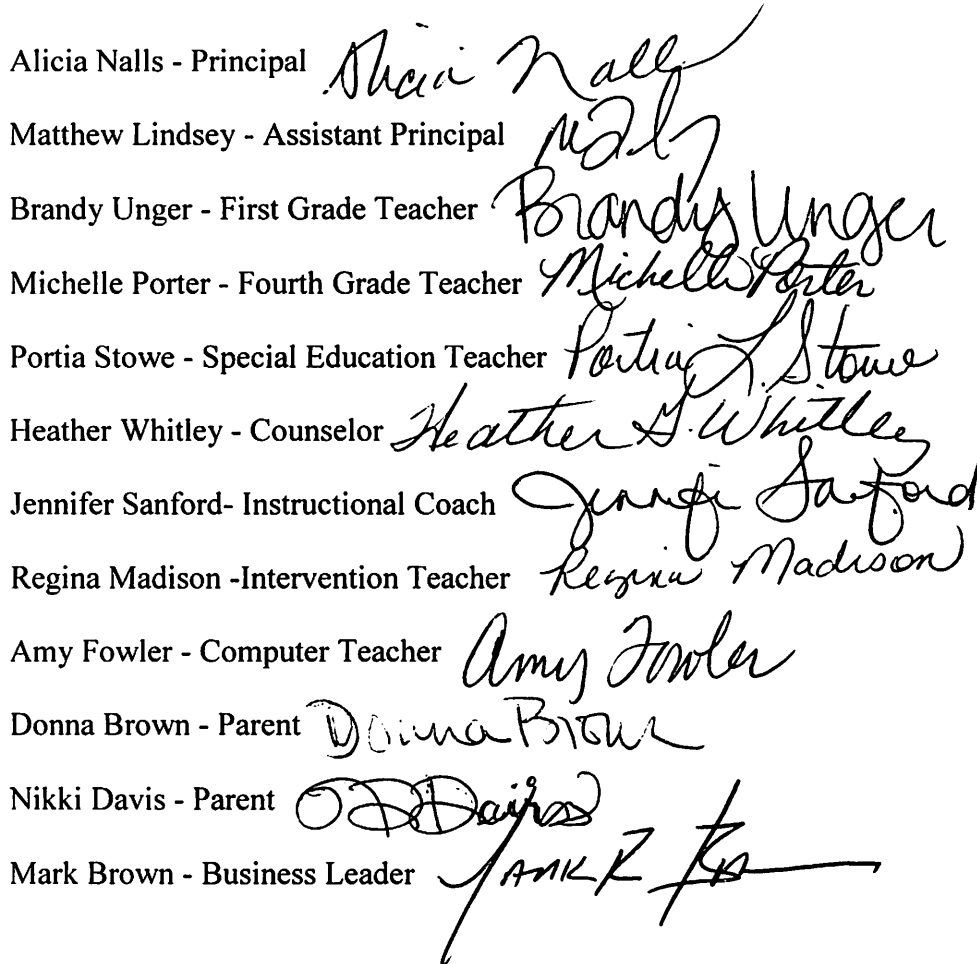 Alicia Nalls - Principal Alicia Nalls
Matthew Lindsey - Assistant Principal
Brandy Unger - First Grade Teacher Brandy Unger
Michelle Porter - Fourth Grade Teacher Michelle Porter
Portia Stowe - Special Education Teacher Portia L. Stowe
Heather Whitley - Counselor Heather G. Whitley
Jennifer Sanford- Instructional Coach Jennifer Sanford
Regina Madison -Intervention Teacher Regina Madison
Amy Fowler - Computer Teacher Amy Fowler
Donna Brown - Parent Donna Brown
Nikki Davis - Parent
Mark Brown - Business Leader Mark R